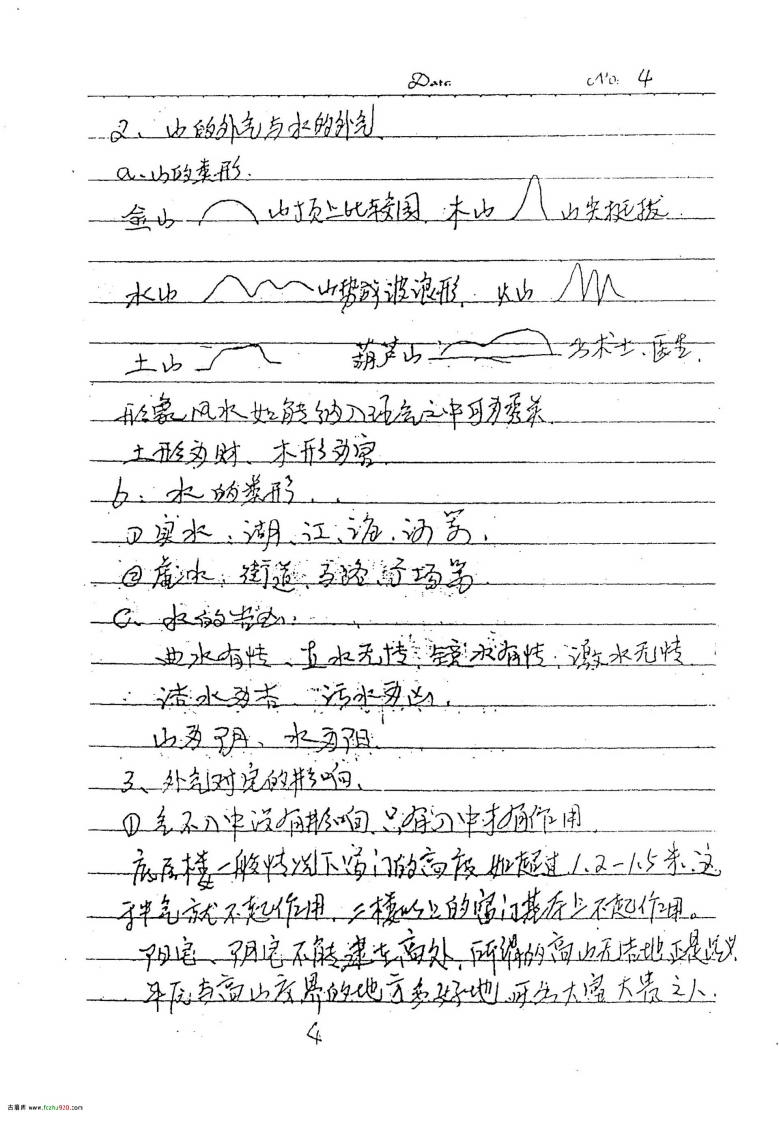 Date No: 4
2、山的外气与水的外气
a、山的类形.
金山 山顶上比较园. 木山 山尖挺拔.
水山 山势成波浪形. 火山
土山 葫芦山 出术士、医生.
形象风水如能纳入 气之中可为
土形为财、木形为
b、水的类形.
①实水:湖、江、海、河等.
②虚水:街道、马路、市场等.
C、水的吉凶:
曲水有情、直水无情、 水有情、激水无情.
洁水为吉、污水为凶.
山为阴、水为阳.
3、外气对宅的影响.
①气不入中没有影响.只有入中才有作用.
底层楼一般情况下 门的高度如超过1.2-1.5米、这
气就不起作用.二楼以上的窗门基本上不起作用。
阳宅、阴宅不能建在高处.所谓的高山无吉地正是此义
平原与高山交界的地方多好地.可出大富大贵之人.
4
古籍库 www.fczhu920.com